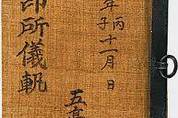 年丙子十一月日
五臺
印所儀軌